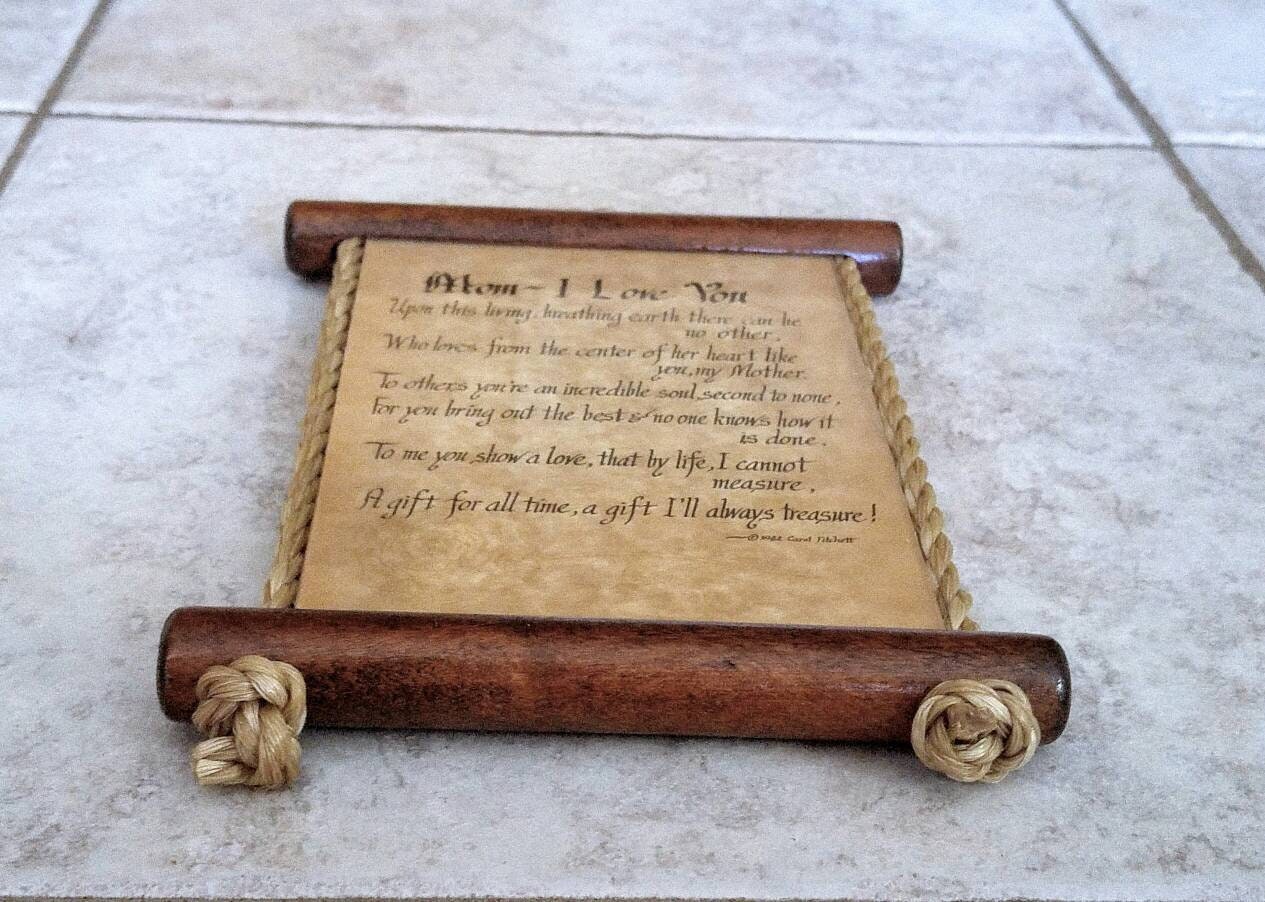 Mom - I Love You
Upon this living, breathing earth there can be
no other,
Who loves from the center of her heart like
you, my Mother.
To others you're an incredible soul, second to none,
For you bring out the best & no one knows how it
is done.
To me you show a love, that by life, I cannot
measure,
A gift for all time, a gift I'll always treasure!
—© 1982 Carol